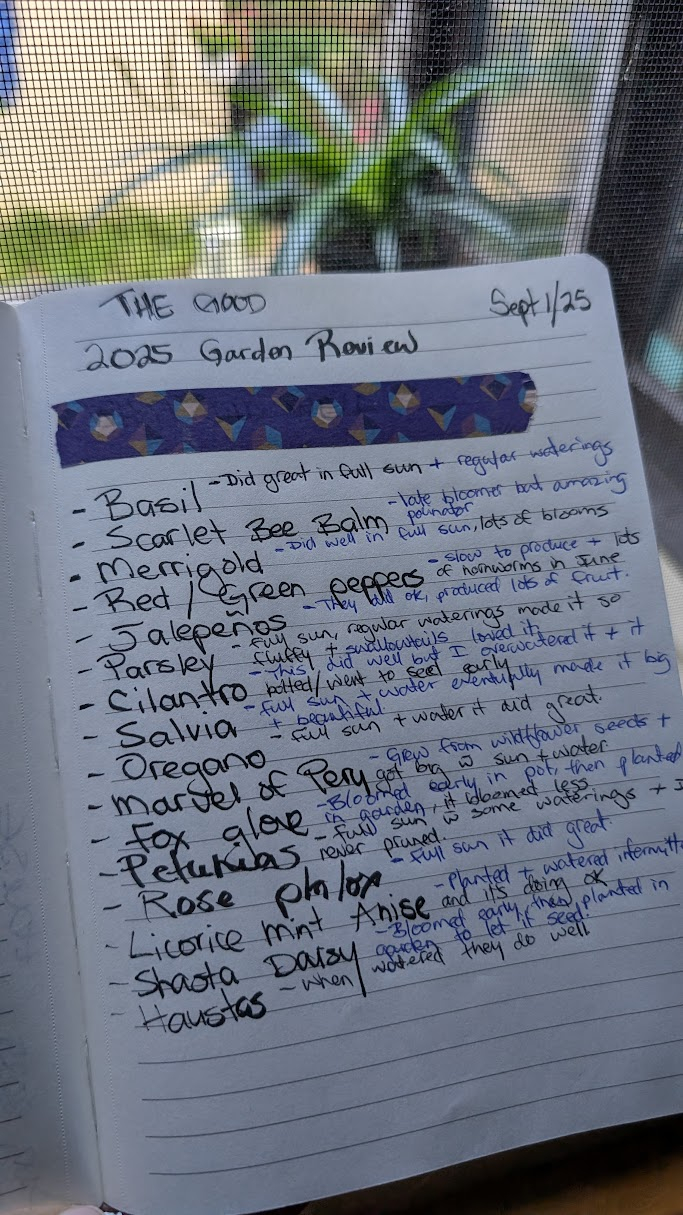 THE GOOD
Sept 1/25
2025 Garden Review
- Basil - Did great in full sun + regular waterings
- Scarlet Bee Balm - late bloomer but amazing polinator
- Merrigold - Did well in full sun, lots of blooms
- Red / Green peppers - slow to produce + lots of hornworms in June
- Jalepeños - They did ok, produced lots of fruit.
- Parsley - full sun, regular waterings made it so fluffy + swallowtails loved it
- Cilantro - This did well but I overwatered it + it bolted/went to seed early
- Salvia - full sun + water eventually made it big + beautiful
- Oregano - full sun + water it did great.
- Marvel of Peru - Grew from wildflower seeds + got big w sun + water
- Fox glove - Bloomed early in pot, then planted in garden, it bloomed less
- Petunias - full sun w some waterings + I never pruned.
- Rose phlox - full sun it did great.
- Licorice mint Anise - Planted + watered and it's doing ok
- Shasta Daisy - Bloomed early, then planted in garden to let it seed.
- Haustas - when watered they do well